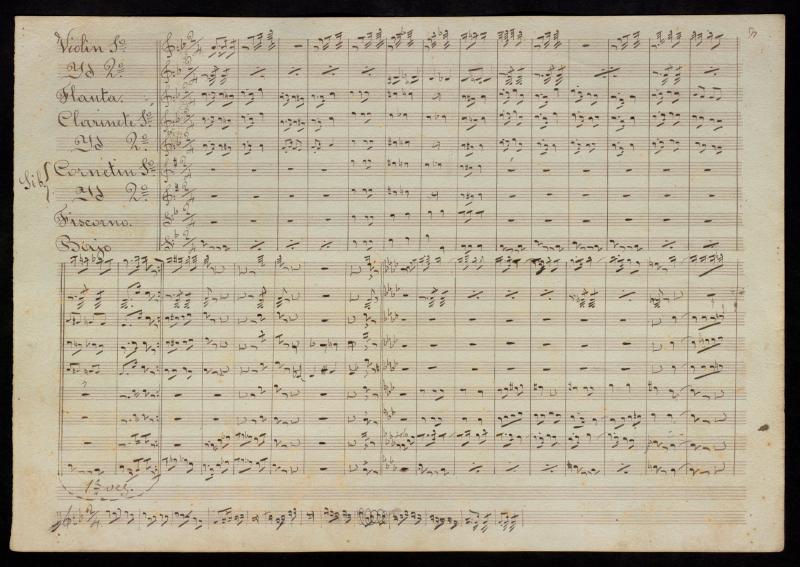 Violin 1º
Yd 2º
Flauta.
Clarinete 1º
Yd 2º
Cornetin 1º
Sib
Yd 2º
Fiscorno.
Bajo
1ª vez.